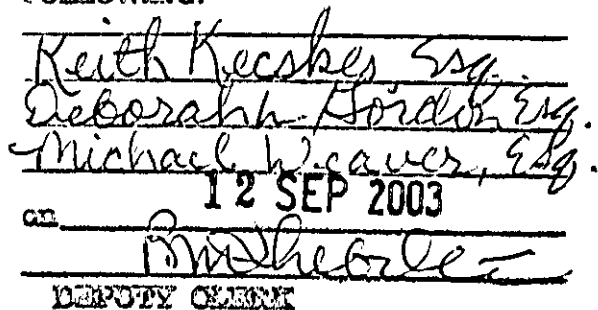 FOLLOWING:
Keith Kecskes Esq.
Deborah Gordon Esq.
Michael Weaver, Esq.
on 12 SEP 2003
DEPUTY CLERK